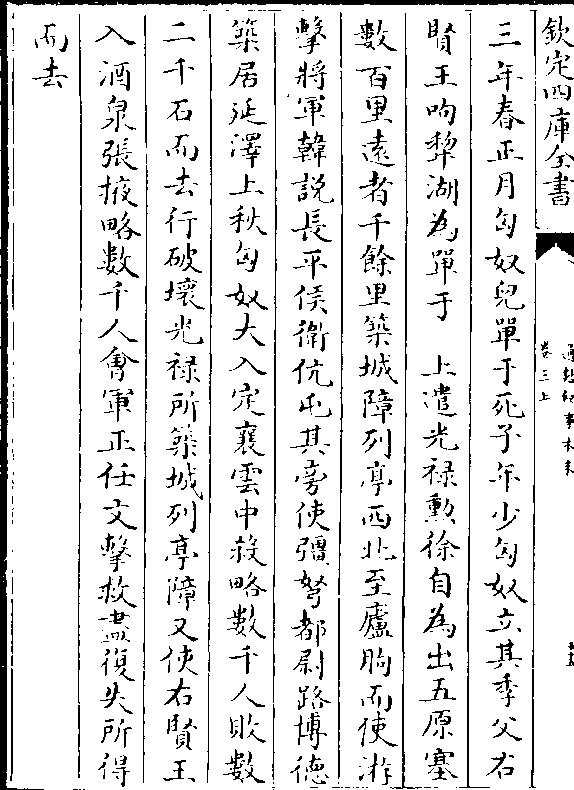 欽定四庫全書
通鑑紀事本末
卷三上
三年春正月匈奴兒單于死子年少匈奴立其季父右
賢王呴犂湖為單于　上遣光禄勲徐自為出五原塞
數百里遠者千餘里築城障列亭西北至廬朐而使游
擊將軍韓説長平侯衞伉屯其旁使彊弩都尉路博德
築居延澤上秋匈奴大入定襄雲中殺略數千人敗數
二千石而去行破壞光禄所築城列亭障又使右賢王
入酒泉張掖略數千人會軍正任文擊救盡復失所得
而去